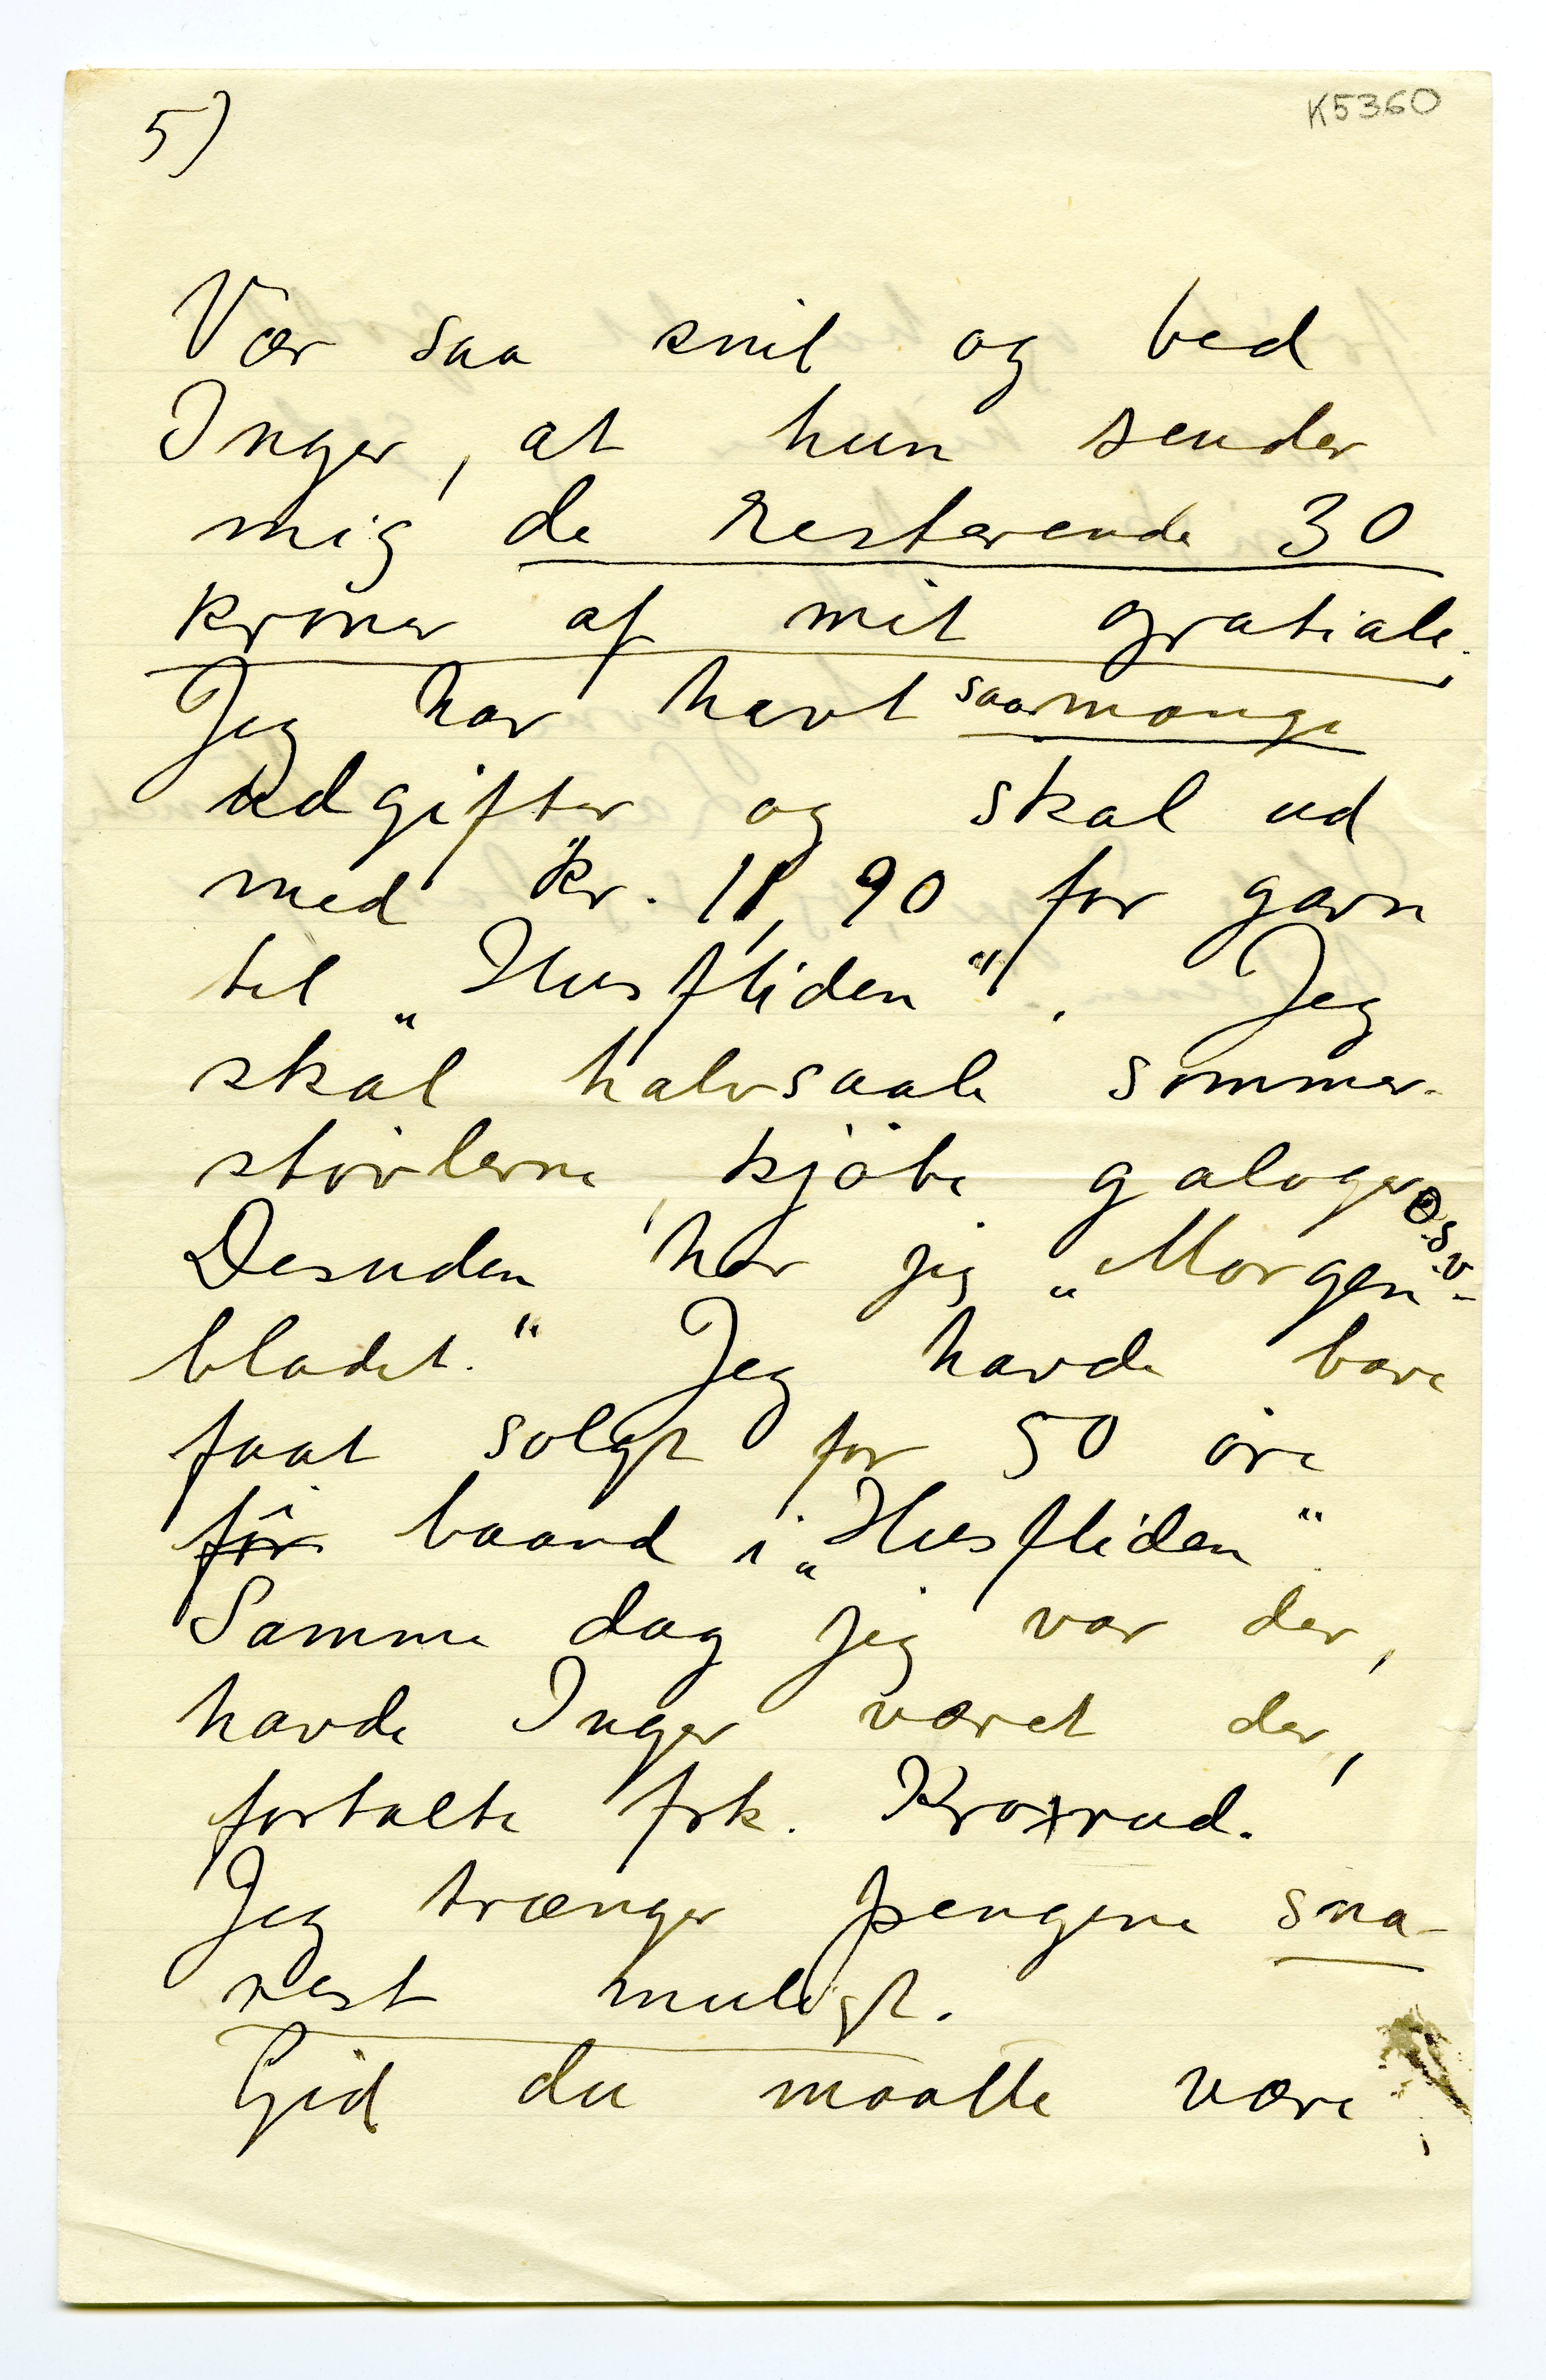 5)
K5360
Vær saa snil og bed
Inger, at hun sender
mig de resterende 30
kroner af mit gratiale.
Jeg har havt saa mange
udgifter og skal ud
med kr. 18,90 for garn
til „Husfliden“. Jeg
skal halvsaale sommer-
støvlerne, kjøbe galoger o.s.v.
Desuden har jeg „Morgen-
bladet.“ Jeg havde bare
faat solgt for 50 øre
för baand i „Husfliden“.
Samme dag jeg var der,
havde Inger været der,
fortalte frk. Kroxrud.
Jeg trænger pengene sna-
rest muligt.
Gid du maatte være